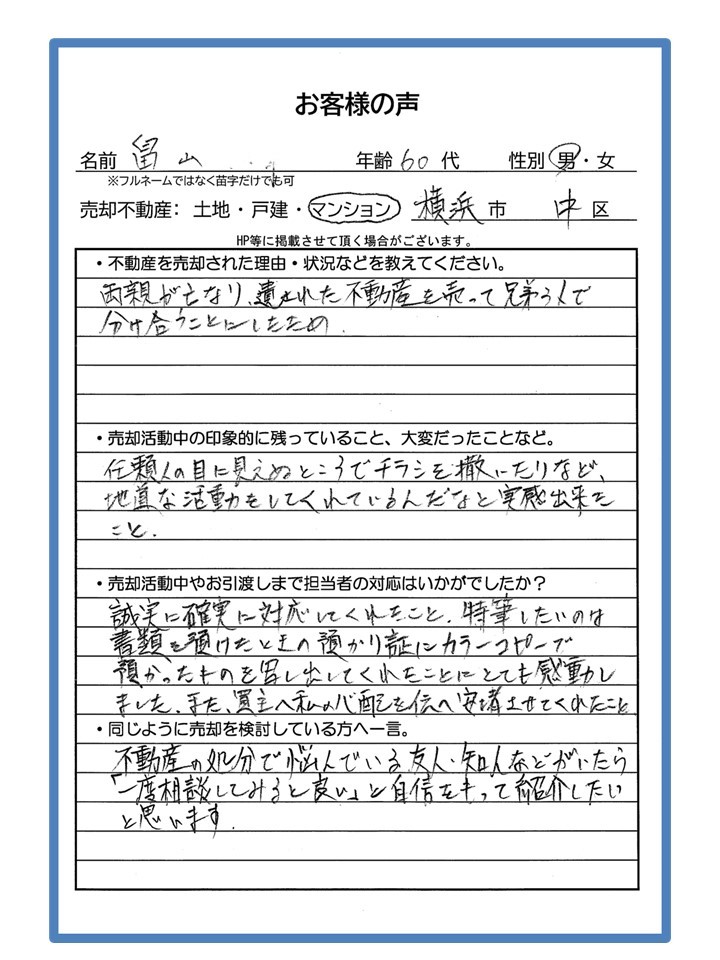 お客様の声
名前 畠山 年齢 60 代 性別 男・女
※フルネームではなく苗字だけでも可
売却不動産: 土地・戸建・マンション 横浜 市 中 区
HP等に掲載させて頂く場合がございます。
・不動産を売却された理由・状況などを教えてください。
両親が亡なり、遺された不動産を売って兄弟3人で
分け合うことにしたため.
・売却活動中の印象的に残っていること、大変だったことなど。
任頼人の目に見えぬところでチラシを撒いたりなど、
地道な活動をしてくれているんだなと実感出来た
こと.
・売却活動中やお引渡しまで担当者の対応はいかがでしたか？
誠実に確実に対応してくれたこと. 特筆したいのは
書類を預けたときの預かり証にカラーコピーで
預かったものを写し出してくれたことにとても感動し
ました. また、買主へ私の心配を伝へ安堵させてくれたこと
・同じように売却を検討している方へ一言。
不動産の処分で悩んでいる友人・知人などがいたら
「一度相談してみると良い」と自信をもって紹介したい
と思います.